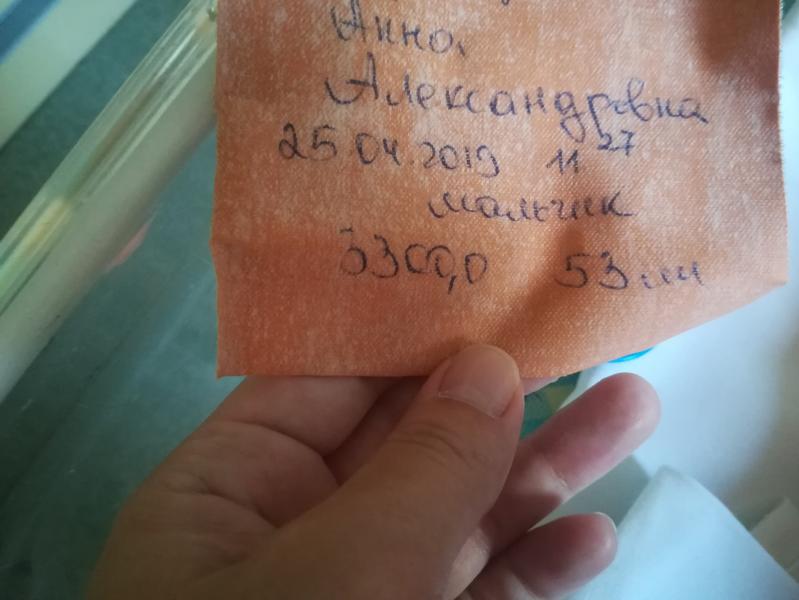 Анна
Александровна
25.04.2019 11 27
мальчик
3300,0 53 см